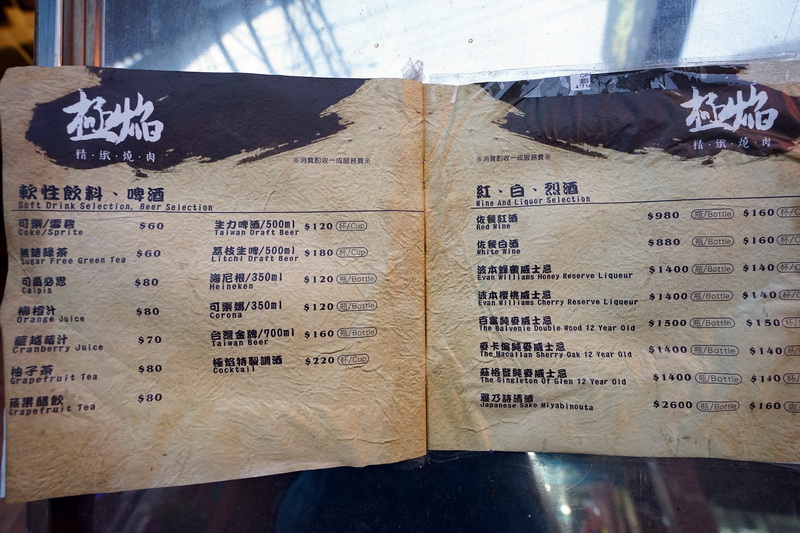 極焰
精·緻·燒·肉
※消費酌收一成服務費※
軟性飲料、啤酒
Soft Drink Selection, Beer Selection
可樂/雪碧 $60
Coke/Sprite
無糖綠茶 $60
Sugar Free Green Tea
可爾必思 $80
Calpis
柳橙汁 $80
Orange Juice
蔓越莓汁 $70
Cranberry Juice
柚子茶 $80
Grapefruit Tea
蘋果醋飲 $80
Grapefruit Tea
生力啤酒/500ml $120 杯/Cup
Taiwan Draft Beer
荔枝生啤/500ml $180 杯/Cup
Litchi Draft Beer
海尼根/350ml $120 瓶/Bottle
Heineken
可樂娜/350ml $120 瓶/Bottle
Corona
台灣金牌/700ml $160 瓶/Bottle
Taiwan Beer
極焰特製調酒 $220 杯/Cup
Cocktail
極焰
精·緻·燒·肉
※消費酌收一成服務費※
紅、白、烈酒
Wine And Liquor Selection
佐餐紅酒 $980 瓶/Bottle $160
Red Wine
佐餐白酒 $880 瓶/Bottle $160
White Wine
波本蜂蜜威士忌 $1400 瓶/Bottle $140
Evan Williams Honey Reserve Liqueur
波本櫻桃威士忌 $1400 瓶/Bottle $140
Evan Williams Cherry Reserve Liqueur
百富純麥威士忌 $1500 瓶/Bottle $150
The Balvenie Double Wood 12 Year Old
麥卡倫純麥威士忌 $1400 瓶/Bottle $140
The Macallan Sherry Oak 12 Year Old
蘇格登純麥威士忌 $1400 瓶/Bottle $140
The Singleton Of Glen 12 Year Old
雅乃詩清酒 $2600 瓶/Bottle $160
Japanese Sake Miyabinouta